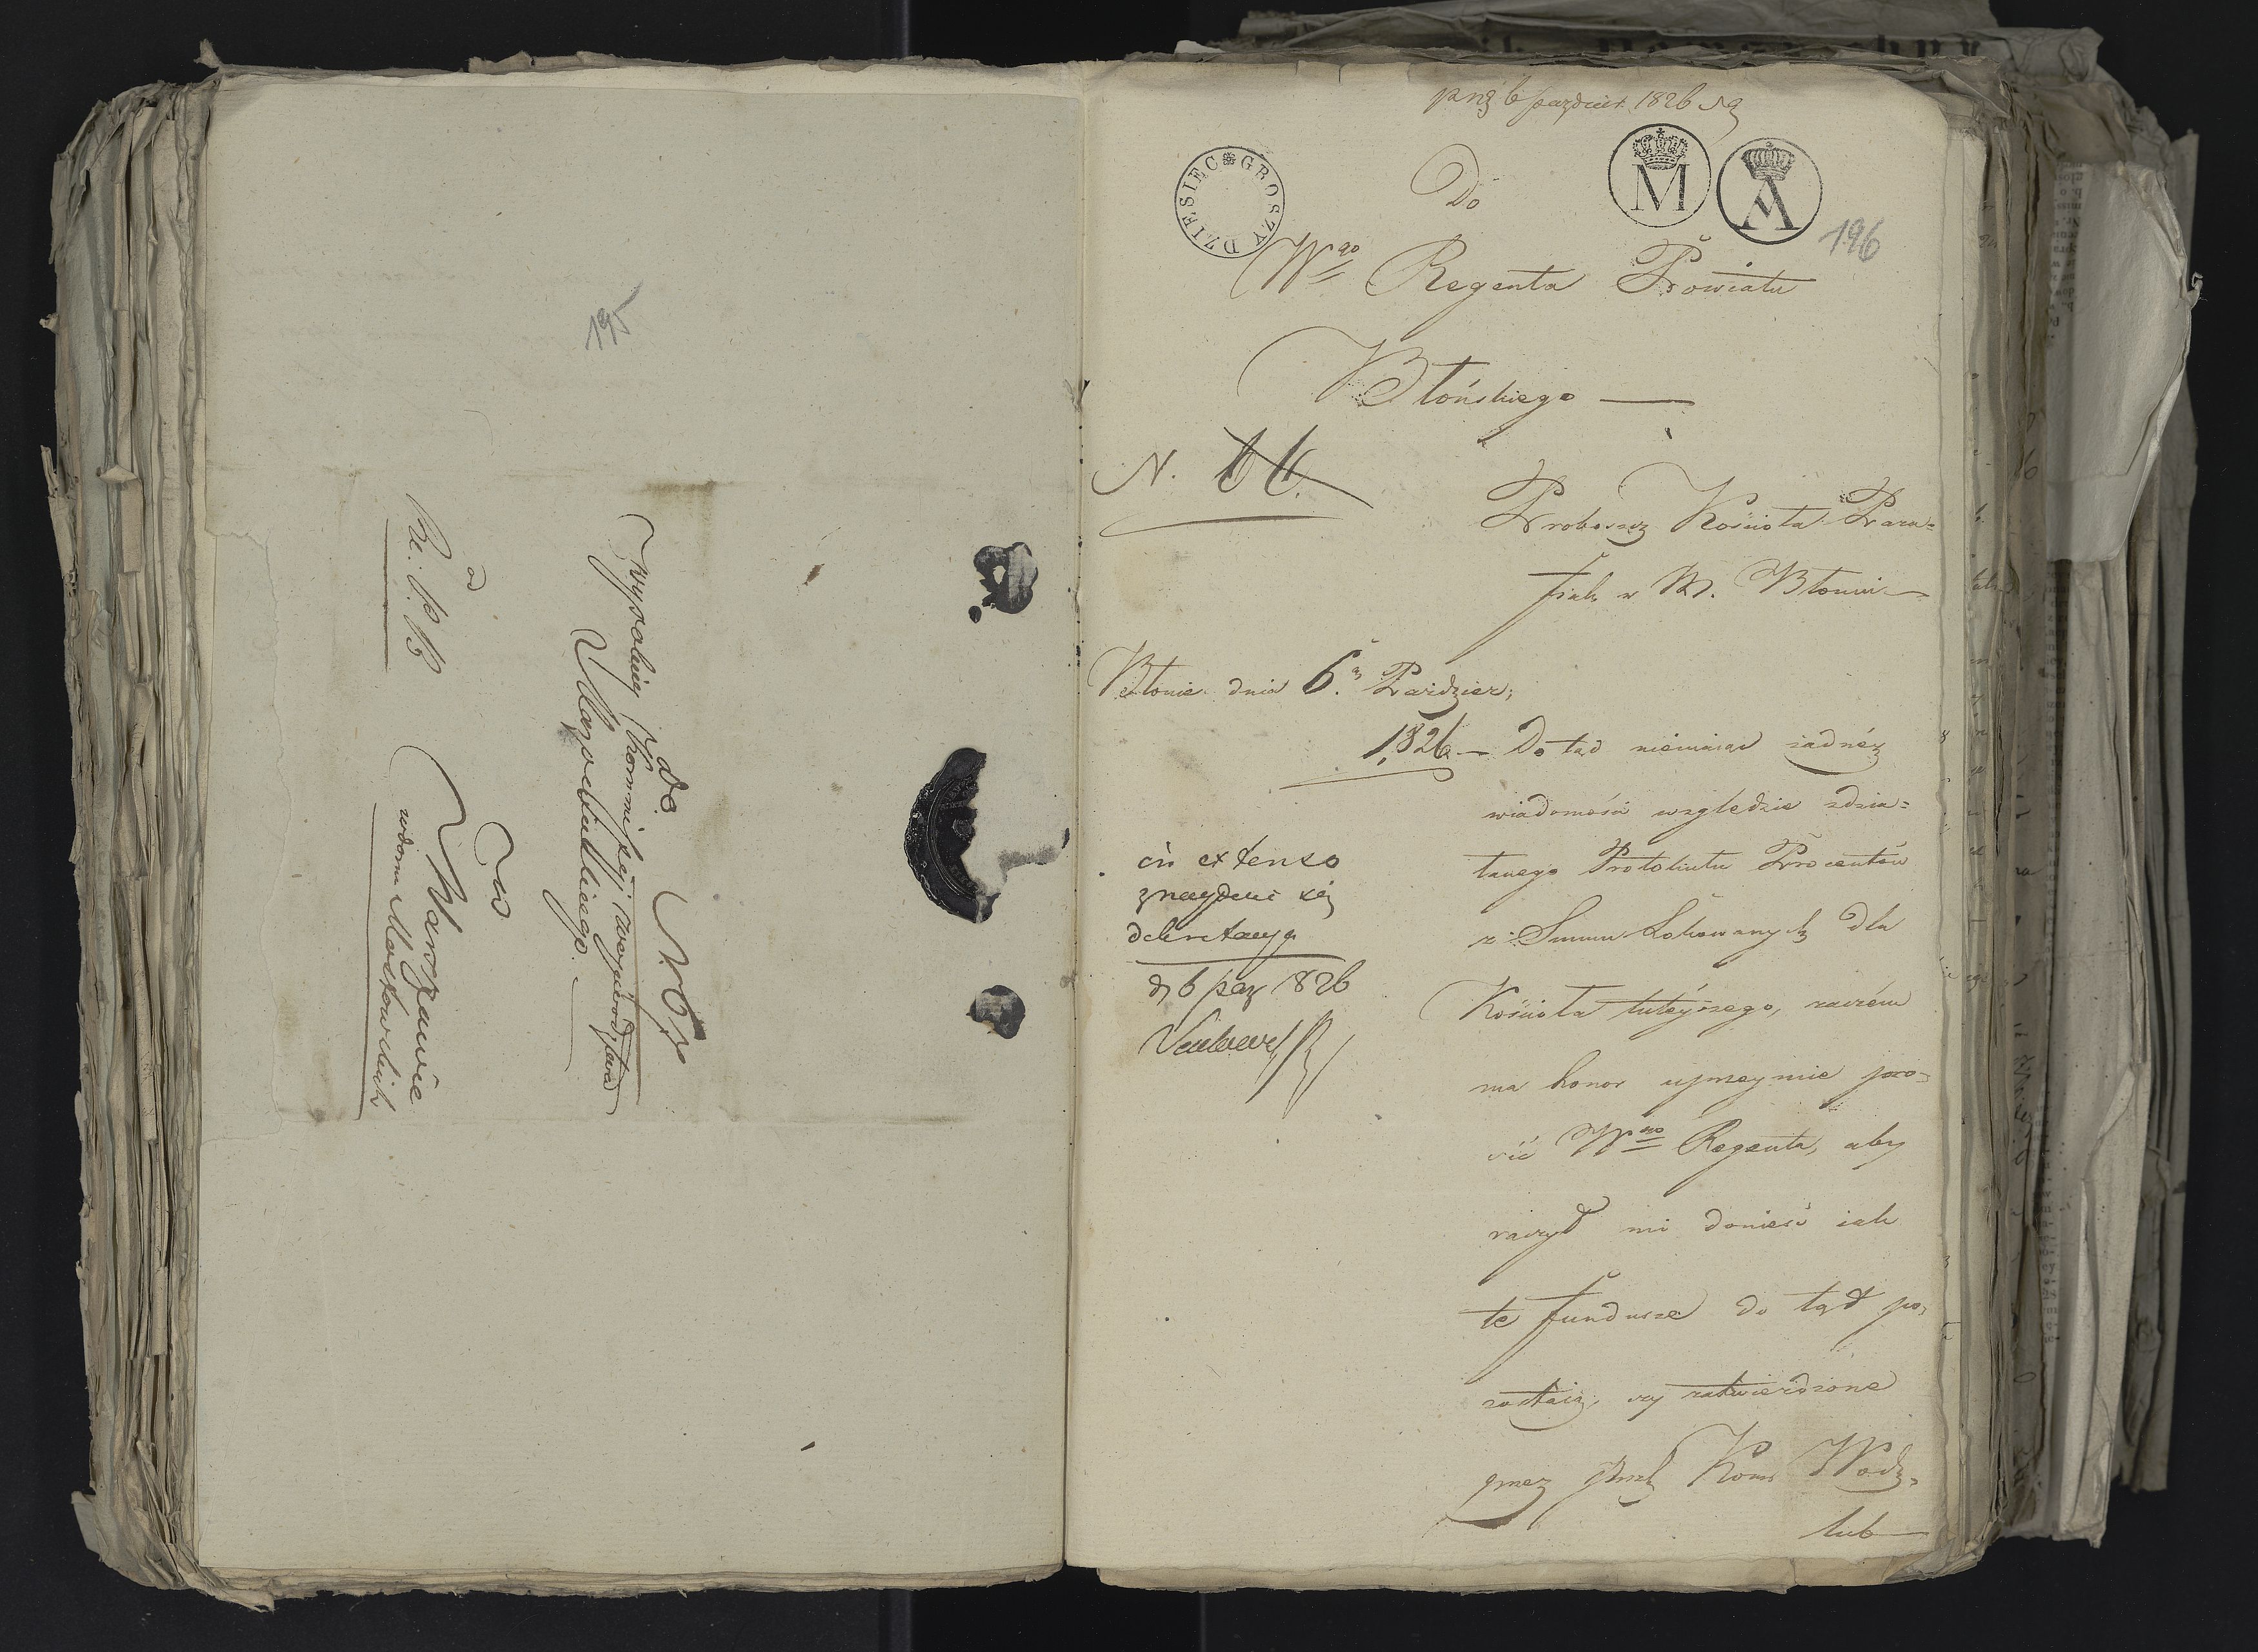 195
No 67
do
Wysokiey Kommissyi Województwa
Mazowieckiego.
w
Warszawie
w domu Mostowskich
prz 6 paździer 1826
DZIESIEC GROSZY
M
A
196
Do
Wgo Regenta Powiatu
Błońskiego —
N. 66.
Proboszcz Kościoła Para=
fial: w M. Błoniu
Błonie dnia 6. Paździer;
1826. — Do tąd niemaiąc żadnéy
wiadomości względzie zdzia=
łanego Protokułu Procentów
z Summ Lokowanych dla
Kościoła tuteyszego, zaczém
ma honor upreymie pro=
sić Wgo Regenta, aby
raczył mi donieść iak
te fundusze do tąd po=
zostaią, czy zatwierdzone
przez Kom Wodz=
lub
in extenso
znayduie się
d 6 paz 1826